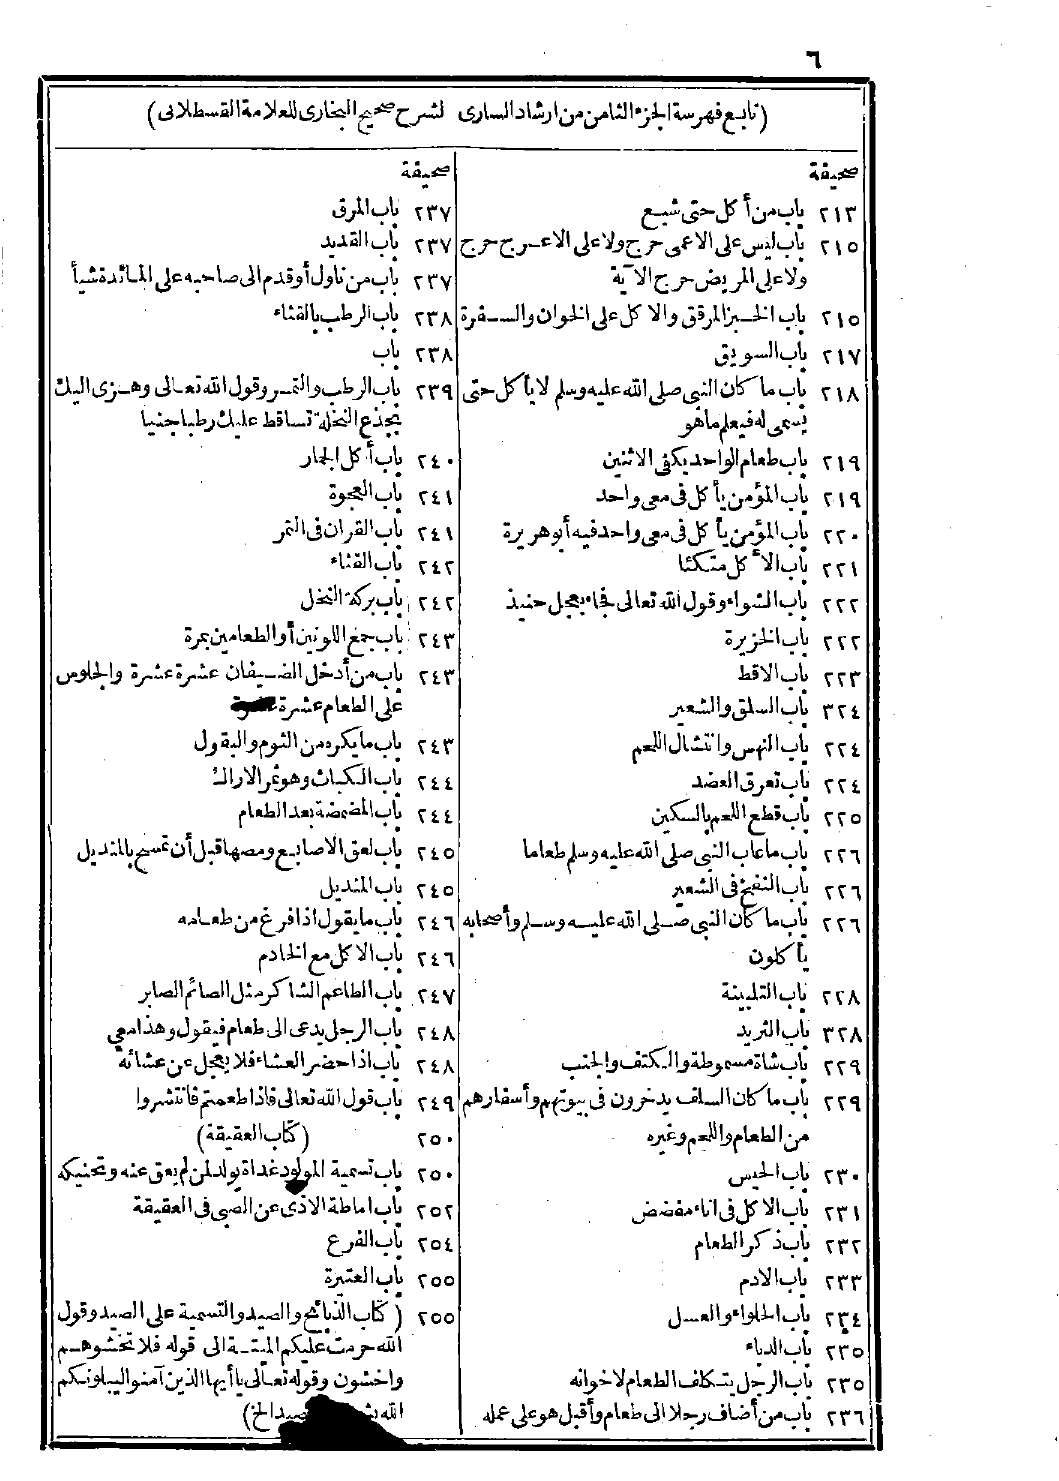 ٦
(تابع فهرسة الجزء الثامن من ارشاد السارى لشرح صحيح البخارى للعلامة القسطلانى)
صحيفة
٢١٣ باب من أكل حتى شبع
٢١٥ باب ليس على الاعمى حرج ولا على الاعرج حرج
ولا على المريض حرج الآية
٢١٥ باب الخبز المرقق والاكل على الخوان والسفرة
٢١٧ باب السويق
٢١٨ باب ما كان النبى صلى الله عليه وسلم لا يأكل حتى
يسمى له فيعلم ماهو
٢١٩ باب طعام الواحد يكفى الاثنين
٢١٩ باب المؤمن يأكل فى معى واحد
٢٢٠ باب المؤمن يأكل فى معى واحد فيه أبو هريرة
٢٢١ باب الأكل متكئا
٢٢٢ باب الشواء وقول الله تعالى فجاء بعجل حنيذ
٢٢٢ باب الخزيرة
٢٢٣ باب الاقط
٣٢٤ باب السلق والشعير
٢٢٤ باب النهس وانتشال اللحم
٢٢٤ باب تعرق العضد
٢٢٥ باب قطع اللحم بالسكين
٢٢٦ باب ما عاب النبى صلى الله عليه وسلم طعاما
٢٢٦ باب النفخ فى الشعير
٢٢٦ باب ما كان النبى صلى الله عليه وسلم وأصحابه
يأكلون
٢٢٨ باب التلبينة
٣٢٨ باب الثريد
٢٢٩ باب شاة مسموطة والكتف والجنب
٢٢٩ باب ما كان السلف يدخرون فى بيوتهم وأسفارهم
من الطعام واللحم وغيره
٢٣٠ باب الحيس
٢٣١ باب الاكل فى اناء مفضض
٢٣٢ باب ذكر الطعام
٢٣٣ باب الادم
٢٣٤ باب الحلواء والعسل
٢٣٥ باب الدباء
٢٣٥ باب الرجل يتكلف الطعام لاخوانه
٢٣٦ باب من أضاف رجلا الى طعام وأقبل هو على عمله
صحيفة
٢٣٧ باب المرق
٢٣٧ باب القديد
٢٣٧ باب من ناول أو قدم الى صاحبه على المائدة شيأ
٢٣٨ باب الرطب بالقثاء
٢٣٨ باب
٢٣٩ باب الرطب والتمر وقول الله تعالى وهزى اليك
بجذع النخلة تساقط عليك رطبا جنيا
٢٤٠ باب أكل الجمار
٢٤١ باب العجوة
٢٤١ باب القران فى التمر
٢٤٢ باب القثاء
٢٤٢ باب بركة النخل
٢٤٣ باب جمع اللونين أو الطعامين بمرة
٢٤٣ باب من أدخل الضيفان عشرة عشرة والجلوس
على الطعام عشرة
٢٤٣ باب ما يكره من الثوم والبقول
٢٤٤ باب الكباث وهو ثمر الاراك
٢٤٤ باب المضمضة بعد الطعام
٢٤٥ باب لعق الاصابع ومصها قبل أن تمسح بالمنديل
٢٤٥ باب المنديل
٢٤٦ باب ما يقول اذا فرغ من طعامه
٢٤٦ باب الاكل مع الخادم
٢٤٧ باب الطاعم الشاكر مثل الصائم الصابر
٢٤٨ باب الرجل يدعى الى طعام فيقول وهذا معى
٢٤٨ باب اذا حضر العشاء فلا يعجل عن عشائه
٢٤٩ باب قول الله تعالى فاذا طعمتم فانتشروا
٢٥٠ (كتاب العقيقة)
٢٥٠ باب تسمية المولود غداة يولد لمن لم يعق عنه وتحنيكه
٢٥٢ باب اماطة الاذى عن الصبى فى العقيقة
٢٥٤ باب الفرع
٢٥٥ باب العتيرة
٢٥٥ (كتاب الذبائح والصيد والتسمية على الصيد وقول
الله حرمت عليكم الميتة الى قوله فلا تخشوهم
واخشون وقوله تعالى يا أيها الذين آمنوا ليبلونكم
الله الصيد الخ)